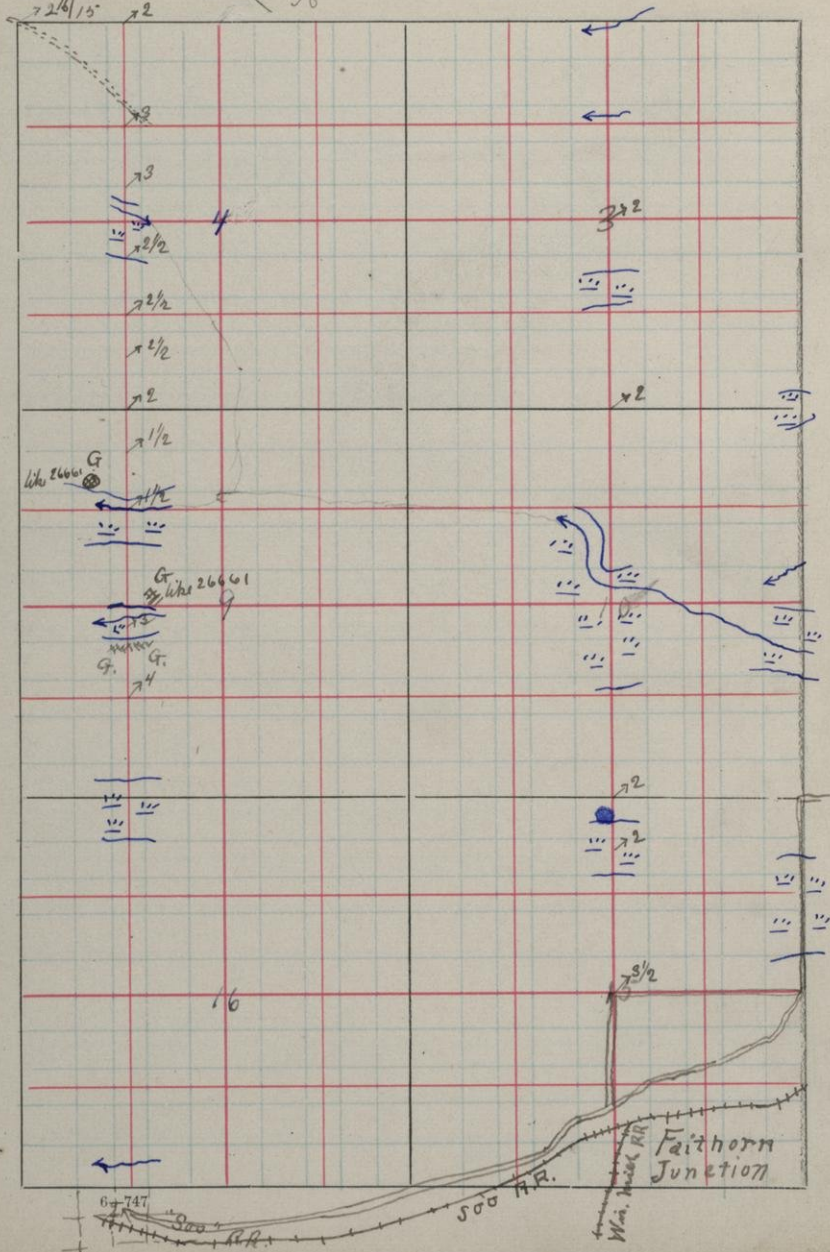 2 16/15 2
3
3
4
3 2
2 1/2
2 1/2
2 1/2
2
2
1 1/2
G
like 26661
1 1/2
G
like 26661
9
3
G. G.
4
2
2
3 1/2
16
Faithorn
Junction
Wis. Mich RR
Soo R.R.
6—747
"Soo" RR.